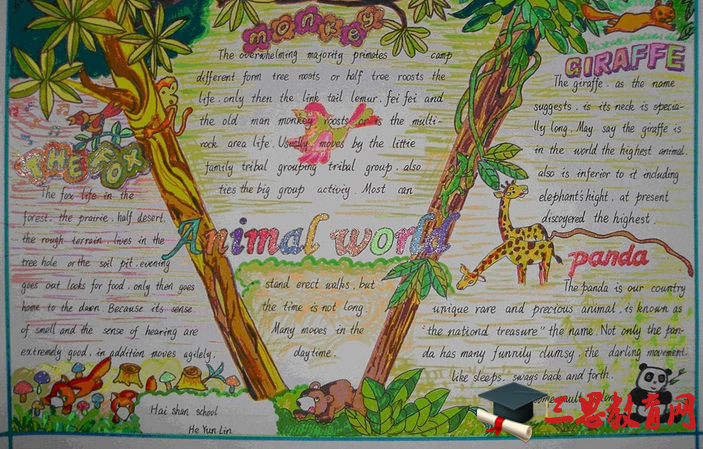 MONKEY
The overwhelming majority primates camp
different form tree roosts or half tree roosts the
life. only then the link tail lemur. fei fei and
the old man monkey roosts or is the multi-
rock area life. Usually moves by the little
family tribal grouping tribal group. also
ties the big group activiy. Most can
stand erect walks. but
the time is not long.
Many moves in the
daytime.
Animal world
THE FOX
The fox life in the
forest. the prairie. half desert.
the rough terrain. lives in the
tree hole or the soil pit. evening
goes out looks for food. only then goes
home to the dawn. Because its sense
of smell and the sense of hearing are
extremely good. in addition moves agilely.
GIRAFFE
The giraffe. as the name
suggests. is its neck is especia-
lly long. May say the giraffe is
in the world the highest animal.
also is inferior to it including
elephant's hight. at present
discoyered the highest.
panda
The panda is our country
unique rare and precious animal. is known as
"the nationd treasure" the name. Not only the pan-
da has many funnily clumsy. the darling movement.
like sleeps. sways back and forth.
Hai shan school
He Yun Lin
三思教育网